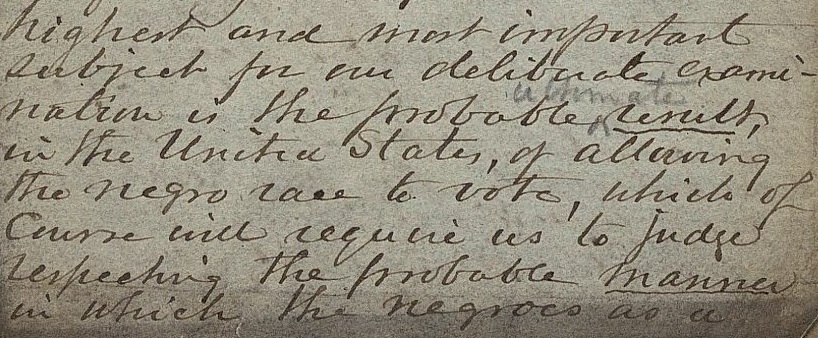 highest and most important
subject for our deliberate exami-
nation is the probable ultimate result,
in the United States, of allowing
the negro race to vote, which of
Course will require us to judge
respecting the probable manner
in which the negroes as a